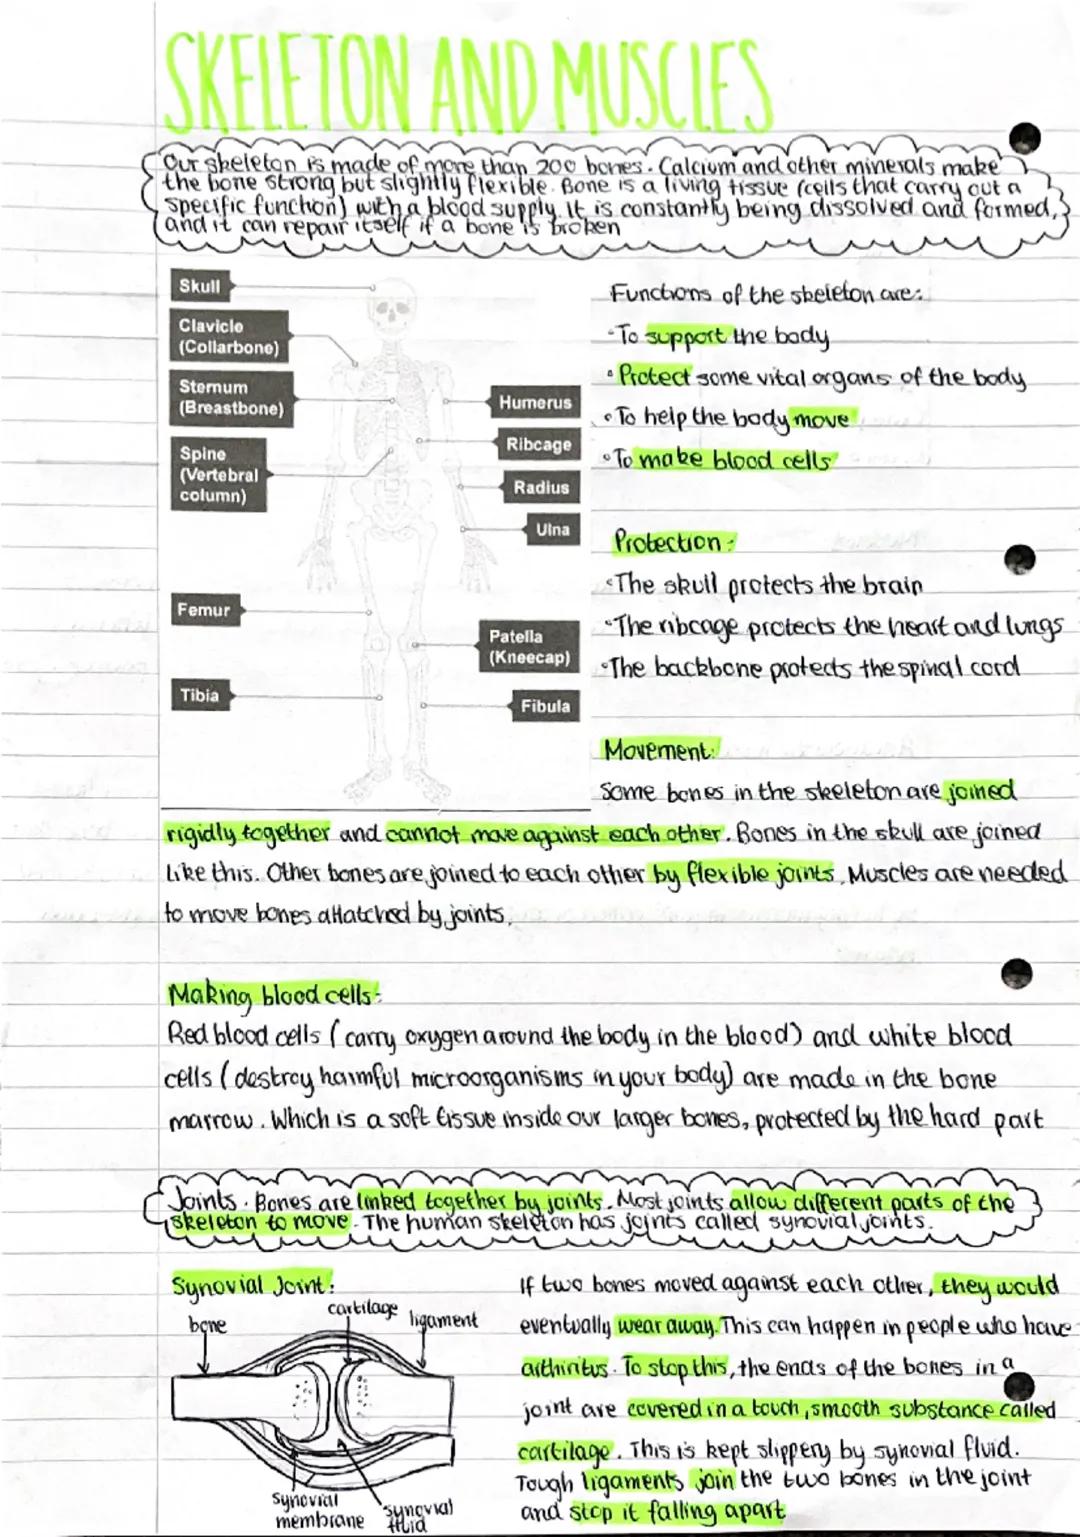 SKELETON AND MUSCLES
Our skeleton is made of more than 200 bones. Calcium and other minerals make
the bone strong but slightly flexible. Bone is a living tissue (cells that carry out a
specific function) with a blood supply. It is constantly being dissolved and formed,
and it can repair itself if a bone is broken
Skull
Clavicle
(Collarbone)
Sternum
(Breastbone)
Spine
(Vertebral
column)
Femur
Tibia
Humerus
Ribcage
Radius
Ulna
Patella
(Kneecap)
Fibula
Functions of the skeleton are:
• To support the body
• Protect some vital organs of the body
• To help the body move
• To make blood cells
Protection:
• The skull protects the brain
• The ribcage protects the heart and lungs
• The backbone protects the spinal cord
Movement:
Some bones in the skeleton are joined
rigidly together and cannot move against each other. Bones in the skull are joined
like this. Other bones are joined to each other by flexible joints. Muscles are needed
to move bones attatched by joints.
Making blood cells:
Red blood cells (carry oxygen around the body in the blood) and white blood
cells (destroy harmful microorganisms in your body) are made in the bone
marrow. Which is a soft tissue inside our larger bones, protected by the hard part
Joints. Bones are linked together by joints. Most joints allow different parts of the
skeleton to move. The human skeleton has joints called synovial joints.
Synovial Joint:
bone
cartilage
ligament
synovial
membrane
synovial
fluid
If two bones moved against each other, they would
eventually wear away. This can happen in people who have
arthiritus. To stop this, the ends of the bones in a
joint are covered in a touch, smooth substance called
cartilage. This is kept slippery by synovial fluid.
Tough ligaments join the two bones in the joint
and stop it falling apart